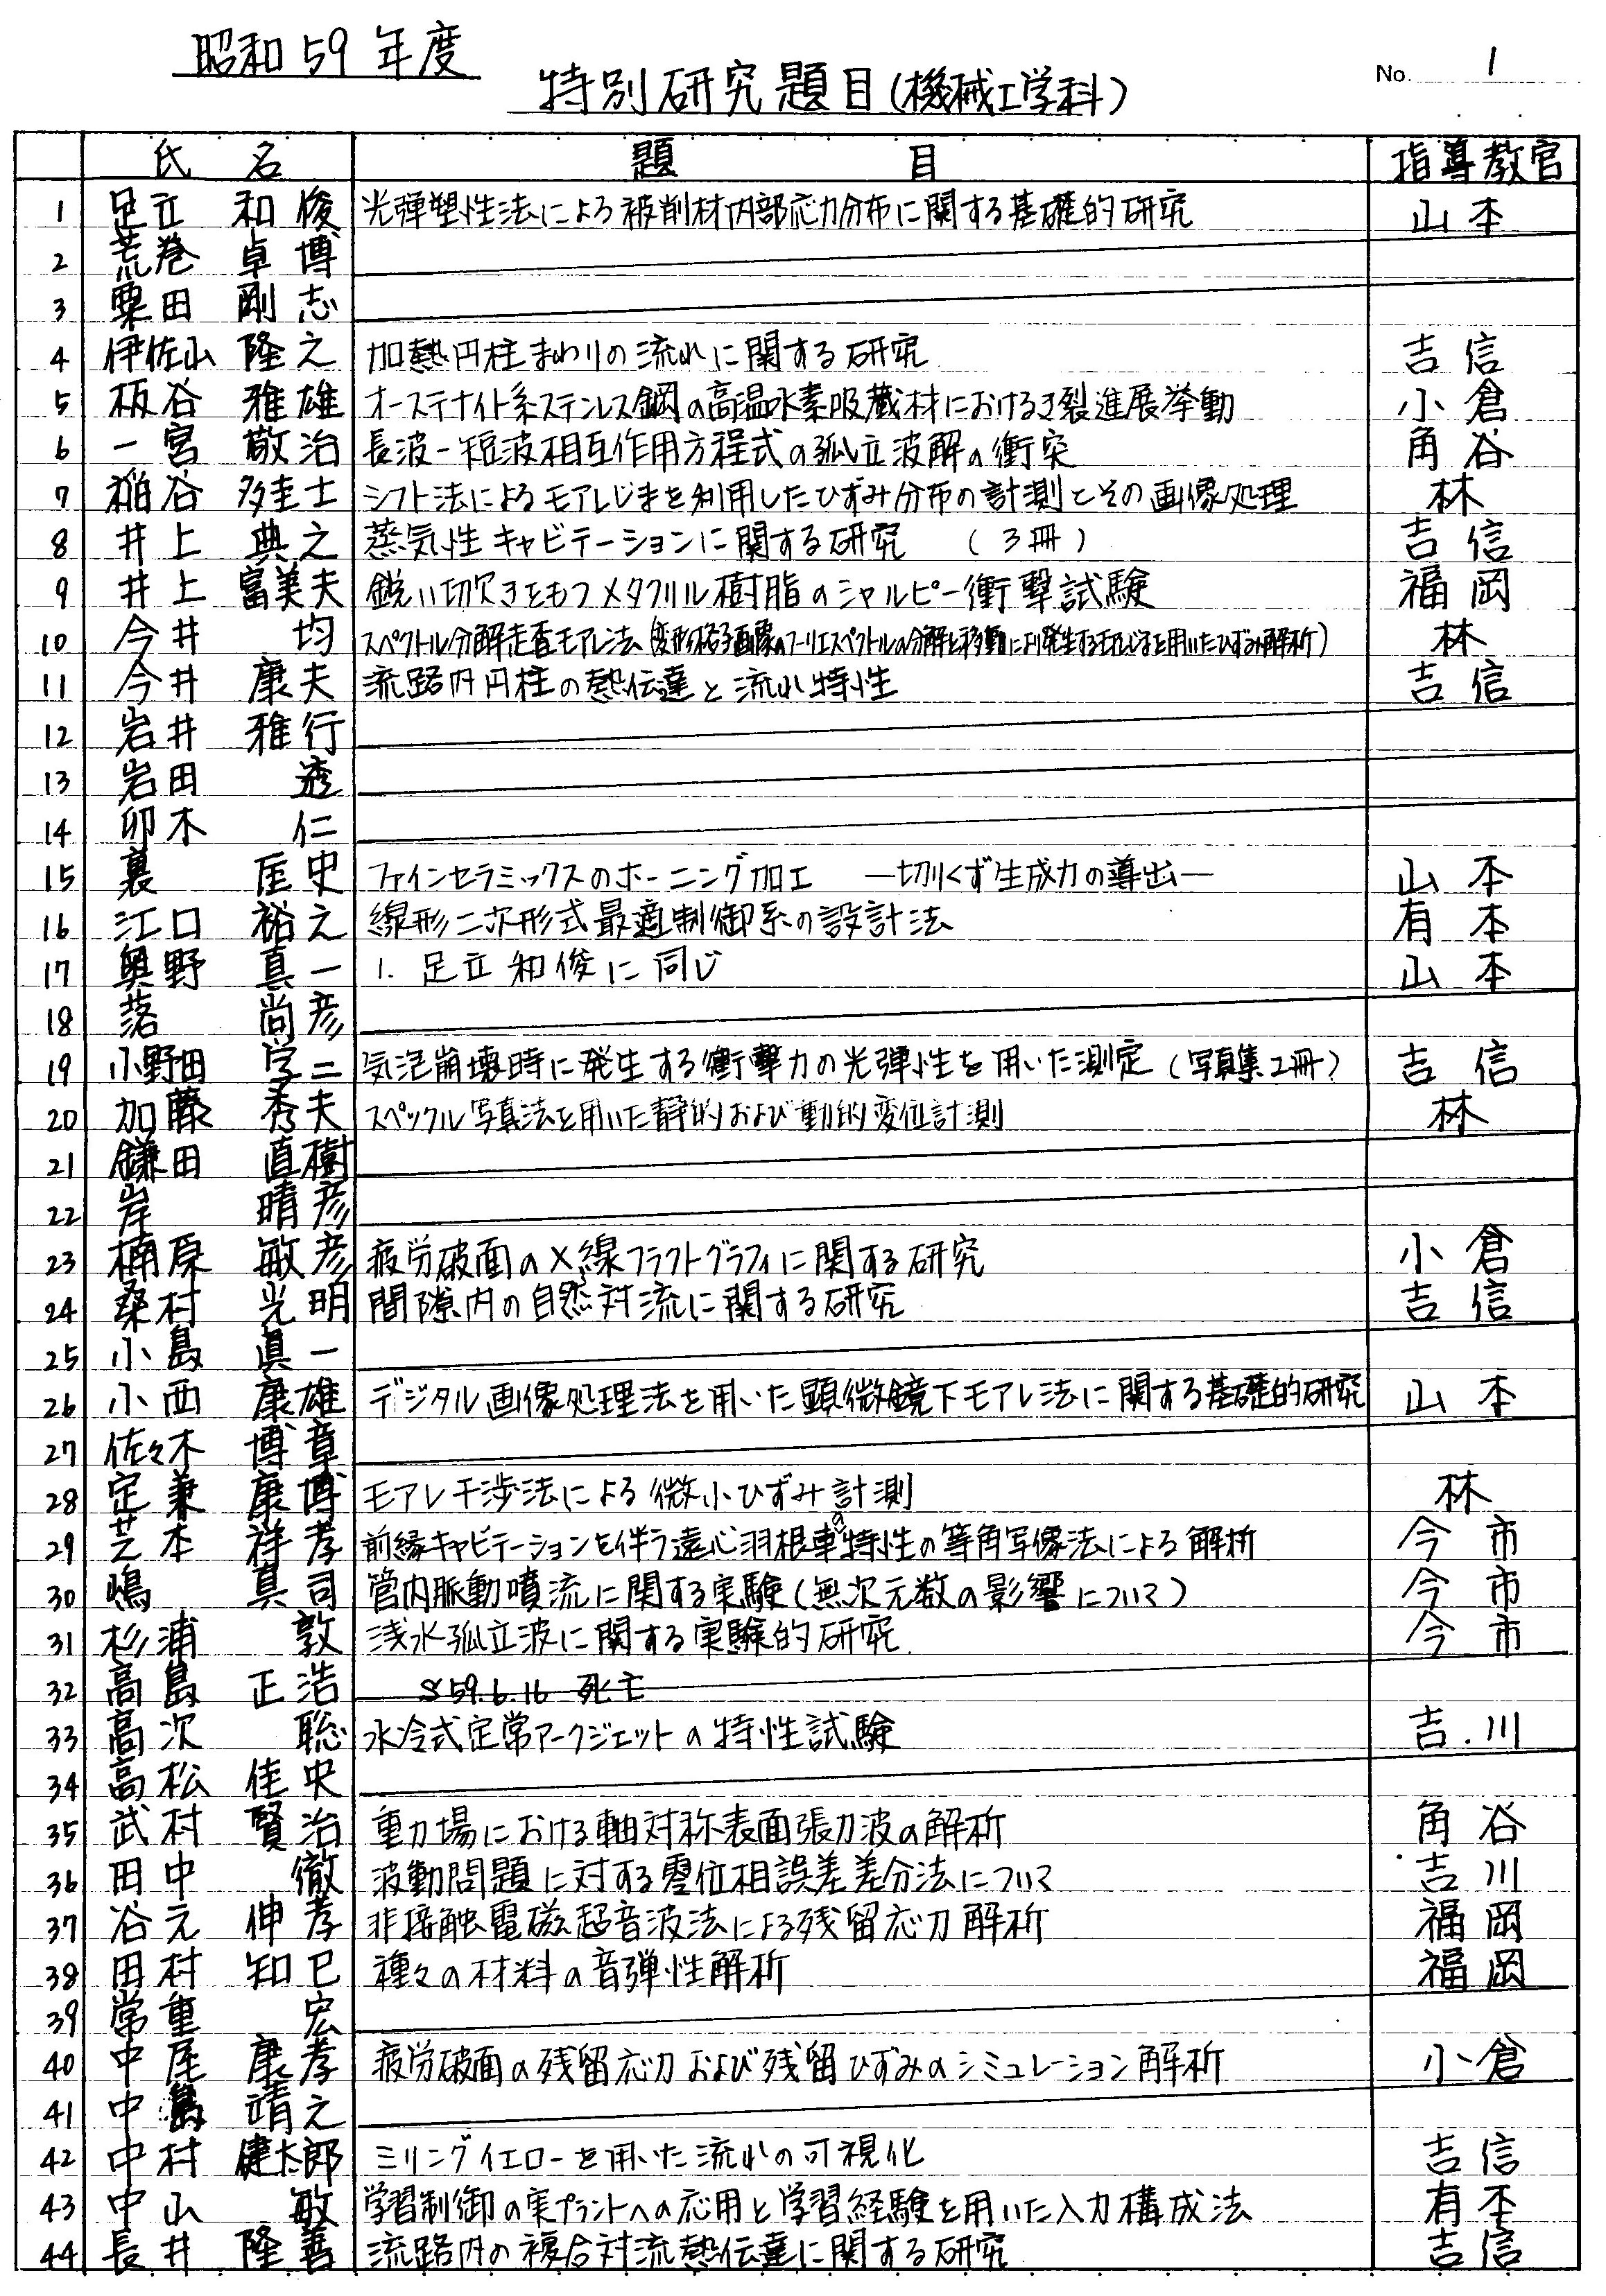 昭和59年度
特別研究題目(機械工学科)
No. 1
氏 名 題 目 指導教官
1 足立 和俊 光弾塑性法による被削材内部応力分布に関する基礎的研究 山本
2 荒巻 卓博
3 粟田 剛志
4 伊佐山 隆之 加熱円柱まわりの流れに関する研究 吉信
5 板谷 雅雄 オーステナイト系ステンレス鋼の高温水素吸蔵材におけるき裂進展挙動 小倉
6 一宮 敬治 長波-短波相互作用方程式の孤立波解の衝突 角谷
7 糘谷 多圭士 シフト法によるモアレじまを利用したひずみ分布の計測とその画像処理 林
8 井上 典之 蒸気性キャビテーションに関する研究 (3冊) 吉信
9 井上 富美夫 鋭い切欠きをもつメタクリル樹脂のシャルピー衝撃試験 福岡
10 今井 均 スペクトル分解走査モアレ法(変形格子画像のフーリエスペクトルの分解と移動により発生するモアレじまを用いたひずみ解析) 林
11 今井 康夫 流路内円柱の熱伝達と流れ特性 吉信
12 岩井 雅行
13 岩田 透
14 卯木 仁
15 裏 匡史 ファインセラミックスのホーニング加工 —切りくず生成力の導出— 山本
16 江口 裕之 線形二次形式最適制御系の設計法 有本
17 奥野 真一 1. 足立和俊に同じ 山本
18 落 尚彦
19 小野田 学二 気泡崩壊時に発生する衝撃力の光弾性を用いた測定(写真集2冊) 吉信
20 加藤 秀夫 スペックル写真法を用いた静的および動的変位計測 林
21 鎌田 直樹
22 岸 晴彦
23 楠原 敏彦 疲労破面のX線フラクトグラフィに関する研究 小倉
24 桑村 光明 間隙内の自然対流に関する研究 吉信
25 小島 眞一
26 小西 康雄 デジタル画像処理法を用いた顕微鏡下モアレ法に関する基礎的研究 山本
27 佐々木 博章
28 定兼 康博 モアレ干渉法による微小ひずみ計測 林
29 芝本 祥孝 前縁キャビテーションを伴う遠心羽根車の特性の等角写像法による解析 今市
30 嶋 真司 管内脈動噴流に関する実験(無次元数の影響について) 今市
31 杉浦 敦 浅水孤立波に関する実験的研究 今市
32 高島 正浩 S59.6.16 死亡
33 高次 聡 水冷式定常アークジェットの特性試験 吉川
34 高松 佳央
35 武村 賢治 重力場における軸対称表面張力波の解析 角谷
36 田中 徹 波動問題に対する零位相誤差差分法について 吉川
37 谷元 伸孝 非接触電磁超音波法による残留応力解析 福岡
38 田村 知巳 種々の材料の音弾性解析 福岡
39 常重 宏
40 中尾 康孝 疲労破面の残留応力および残留ひずみのシミュレーション解析 小倉
41 中島 靖之
42 中村 健太郎 ミリングイエローを用いた流れの可視化 吉信
43 中山 敏 学習制御の実プラントへの応用と学習経験を用いた入力構成法 有本
44 長井 隆善 流路内の複合対流熱伝達に関する研究 吉信